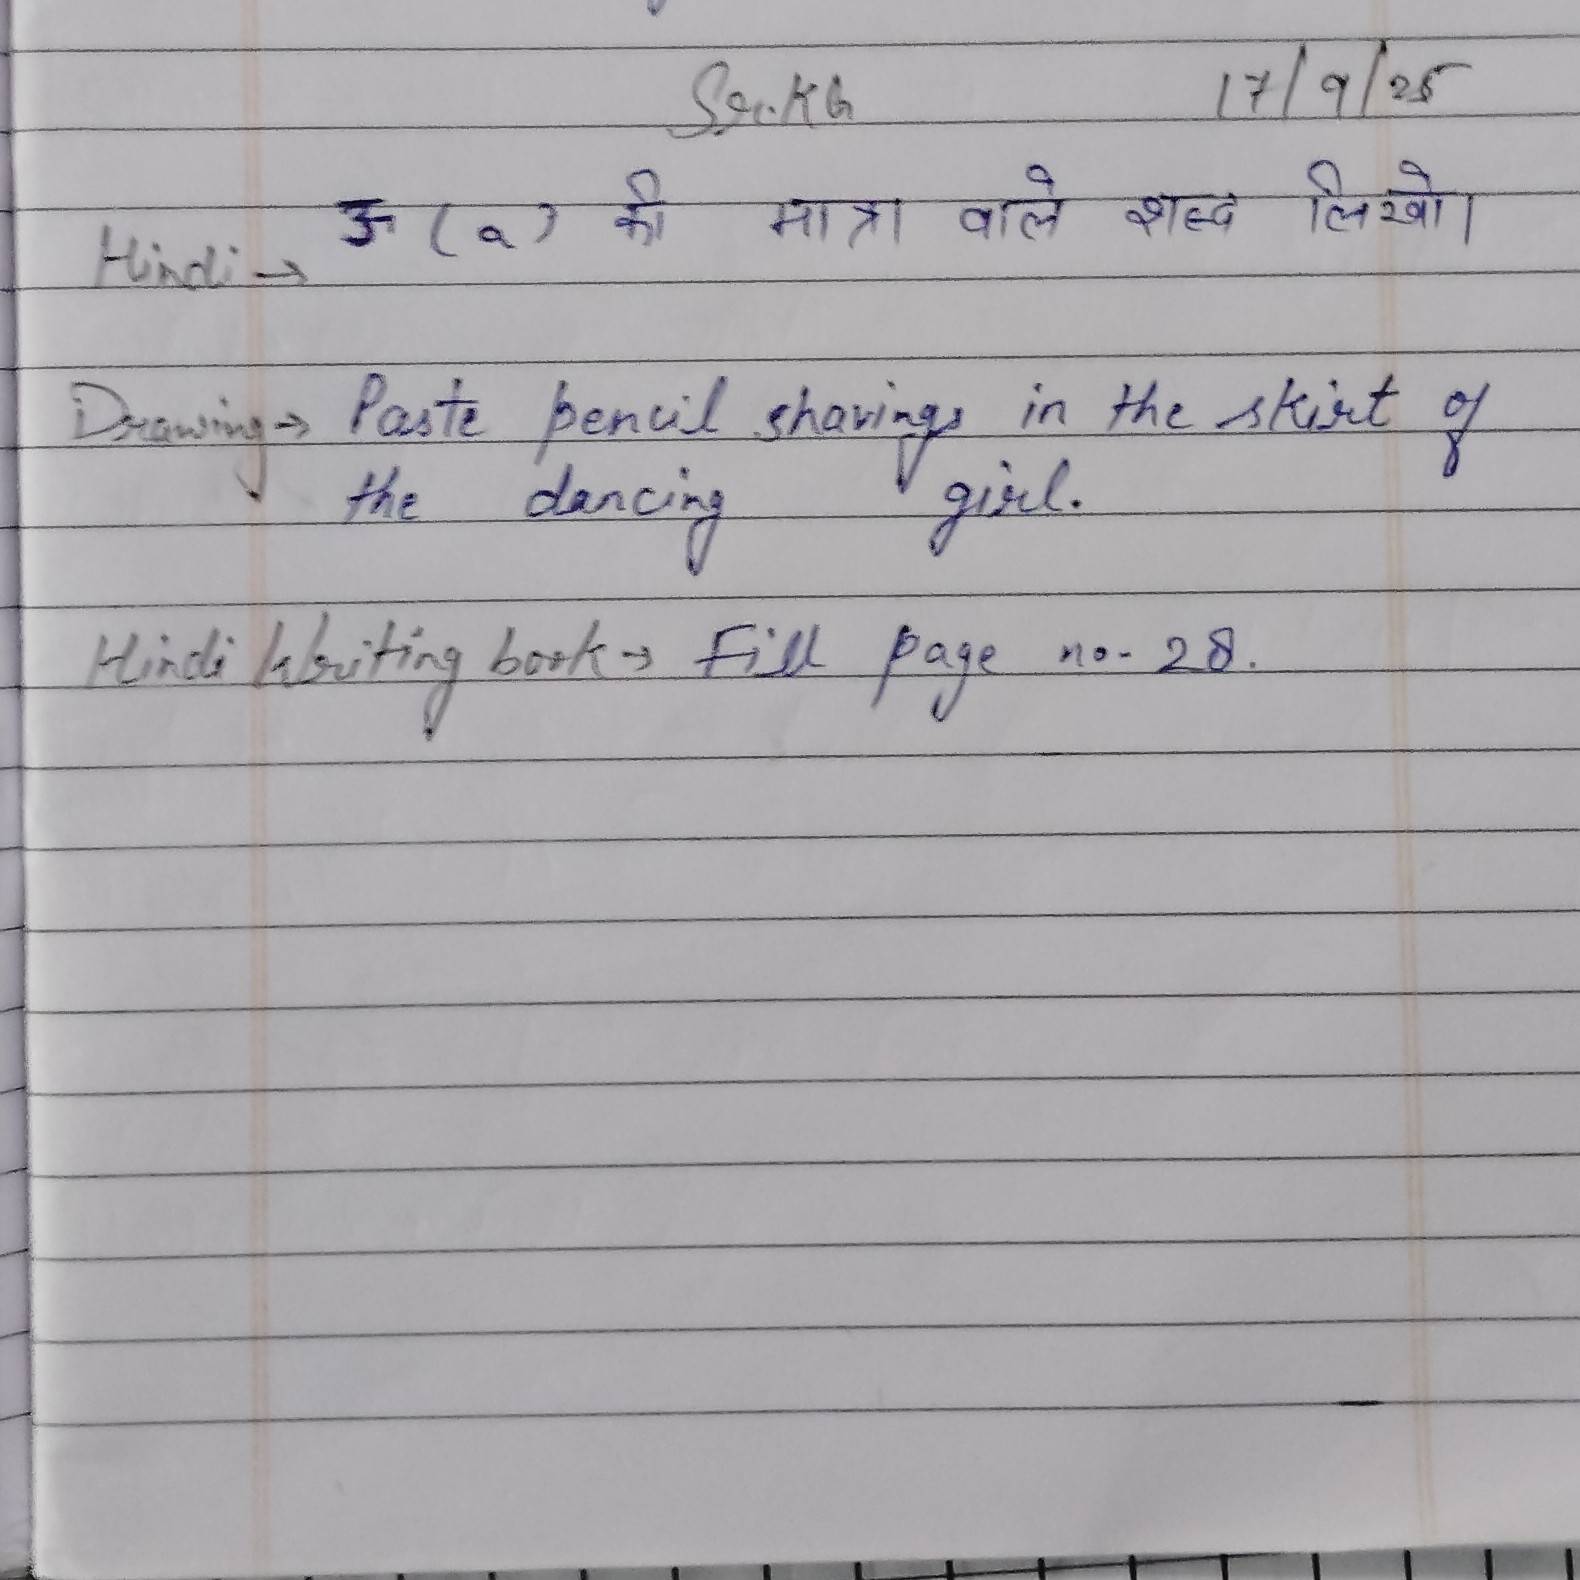 Sr. KG 17/9/25
Hindi → ऊ ( ू ) की मात्रा वाले शब्द लिखो।
Drawing → Paste pencil shavings in the skirt of
the dancing girl.
Hindi Writing book → Fill page no- 28.